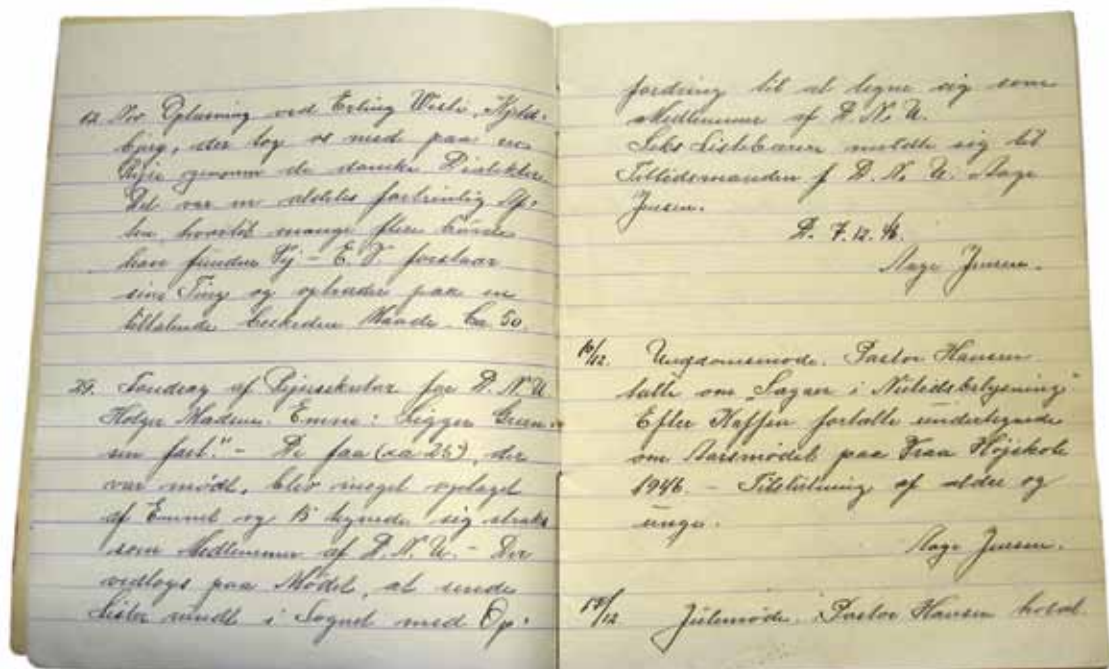 12. Ny Oplæsning ved Erling Westi, Kjeld-
bjerg, der tog os med paa en
Rejse gennem de danske Dialekter.
Det var en aldeles fortrinlig Af-
ten, hvortil mange flere burde
han funden Vej - E. V. forstaar
sine Ting og optræder paa en
tiltalende beskeden Maade. Ca. 50.
29. Foredrag af Rejsesekretær for D. N. U.
Holger Madsen. Emne: "Ligger Græn-
sen fast." - De faa (ca 25), der
var mødt, blev meget optaget
af Emnet og 15 tegnede sig straks
som Medlemmer af D. N. U. - Der
vedtoges paa Mødet, at sende
Lister rundt i Sognet med Op-
fordring til at tegne sig som
Medlemmer af D. N. U.
Seks Listebærere meldte sig til
Tillidsmanden f. D. N. U. Aage
Jensen.
D. 7.12.46.
Aage Jensen.
10/12. Ungdomsmøde. Pastor Hansen
talte om "Sagaen i Nutidsbelysning"
Efter Kaffen fortalte undertegnede
om Aarsmødet paa Kraa Højskole
1946. - Tilslutning af ældre og
unge.
Aage Jensen.
18/12 Julemøde. Pastor Hansen holdt